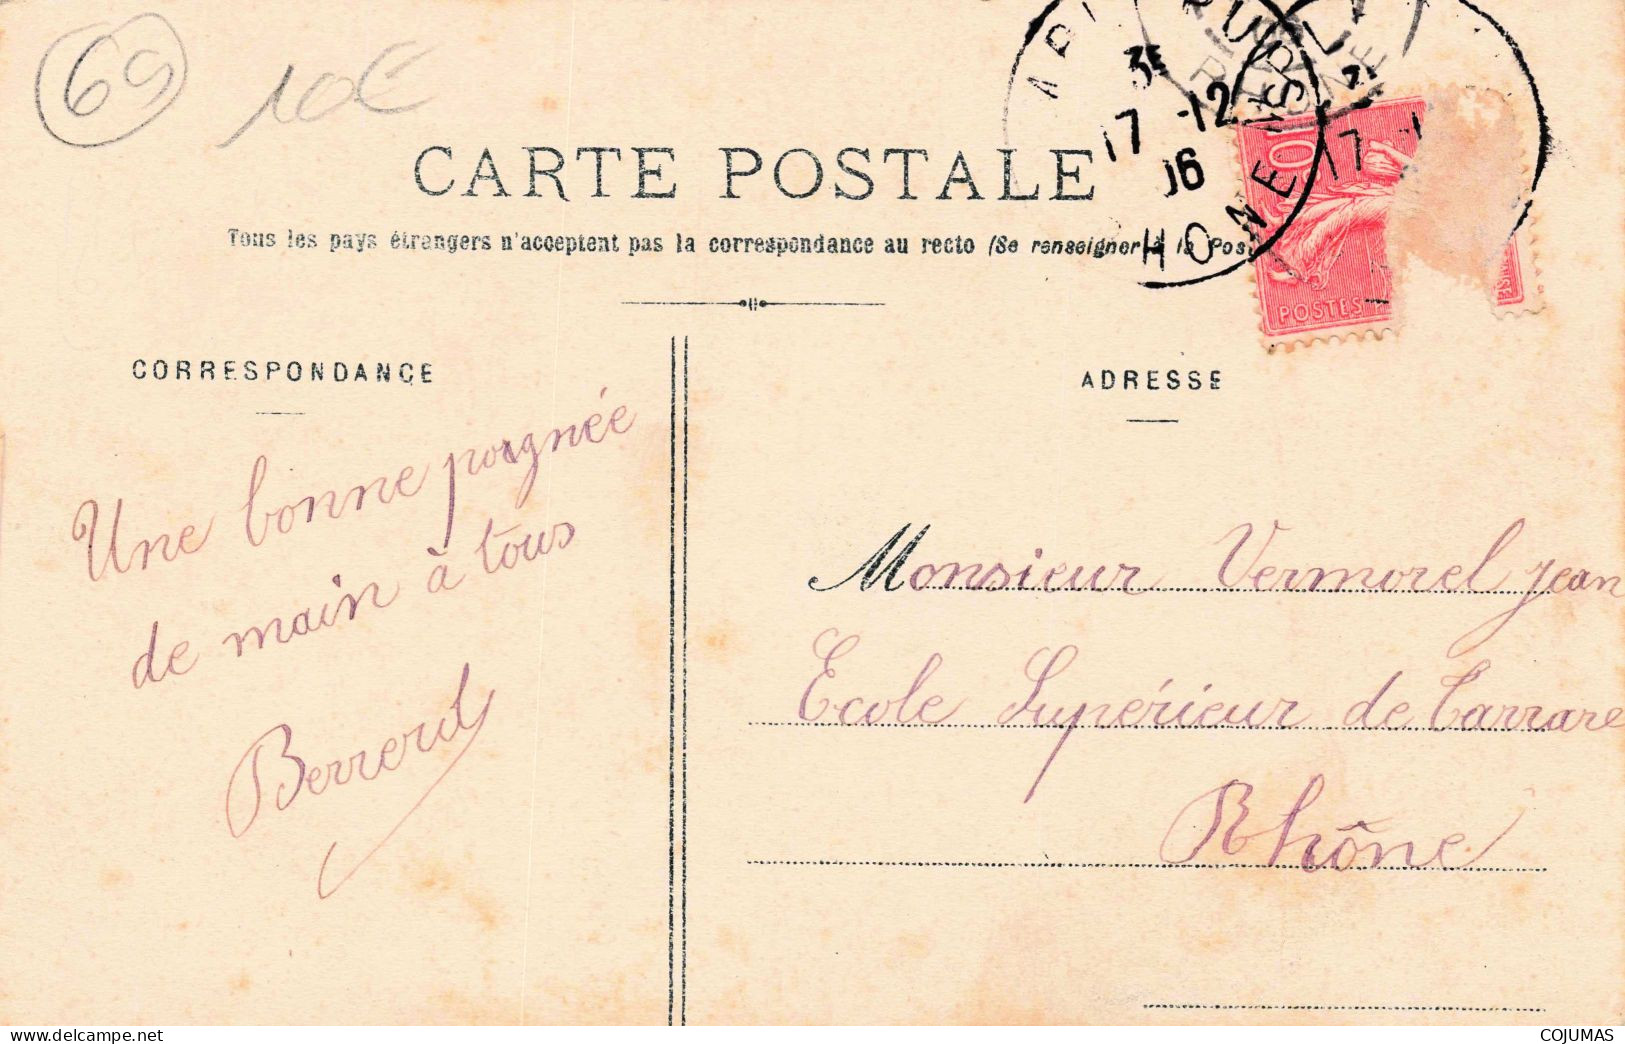 69
10€
CARTE POSTALE
Tous les pays étrangers n'acceptent pas la correspondance au recto (Se renseigner à la Pos
3E
17 -12
06
HONE
10
POSTES
CORRESPONDANCE
ADRESSE
Une bonne poignée
de main à tous
Monsieur Vermorel Jean
Ecole Supérieur de Tarrare
Rhône
COJUMAS